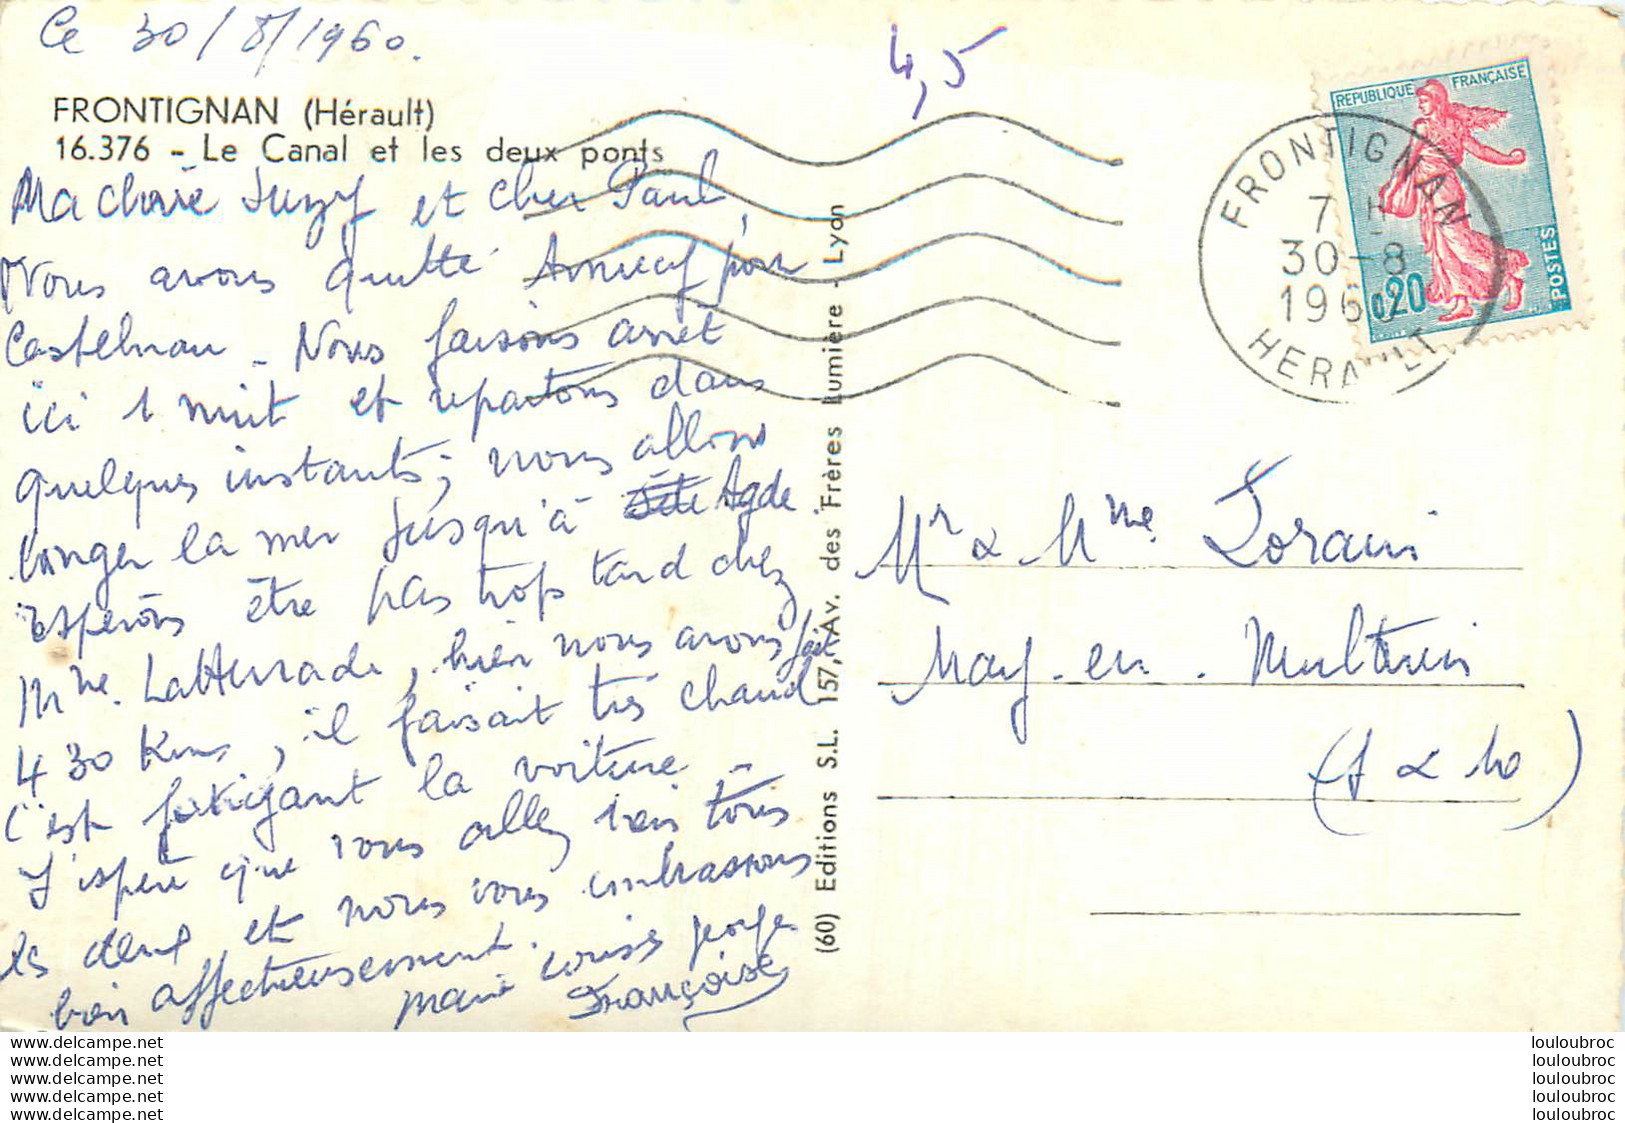 Ce 30/8/1960.
4,5
FRONTIGNAN (Hérault)
16.376 - Le Canal et les deux ponts
Ma chère Suzy et cher Paul,
Nous avons quitté Annecy pour
Castelnau - Nous faisons arrêt
ici 1 nuit et repartons dans
quelques instants, nous allons
longer la mer jusqu'à Sète Agde.
espérons être pas trop tard chez
Mme. , hier nous avons fait
430 Kms, il faisait très chaud
c'est fatigant la voiture -
J'espère que vous allez bien tous
les deux et nous vous embrassons
bien affectueusement.
Marie Louise
Françoise
(60) Editions S.L. 157, Av. des Frères Lumière - Lyon
REPUBLIQUE FRANÇAISE
0,20
POSTES
FRONTIGNAN
7 H
30-8
1960
HERAULT
Mr & Mme Lorain
May-en-Multien
(S & M)
www.delcampe.net
www.delcampe.net
www.delcampe.net
www.delcampe.net
www.delcampe.net
louloubroc
louloubroc
louloubroc
louloubroc
louloubroc